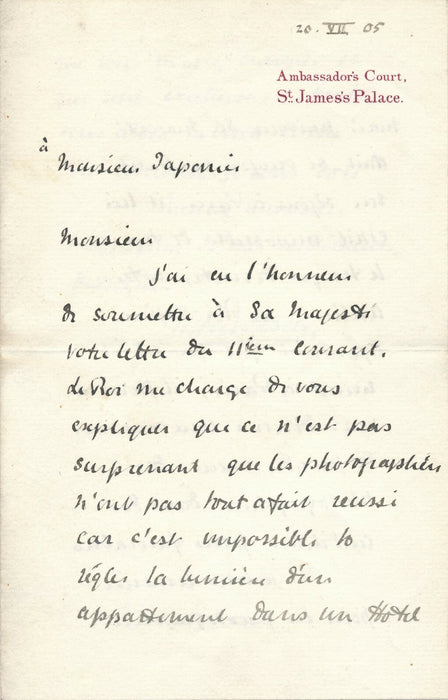 20. VII 05
Ambassador's Court,
St. James's Palace.
à
Monsieur Taponier
Monsieur
J'ai eu l'honneur
de soumettre à Sa Majesté
votre lettre du 11ième courant.
Le Roi me charge de vous
expliquer que ce n'est pas
surprenant que les photographies
n'ont pas tout a fait reussi
car c'est impossible to
régler la lumière d'un
appartement dans un Hotel